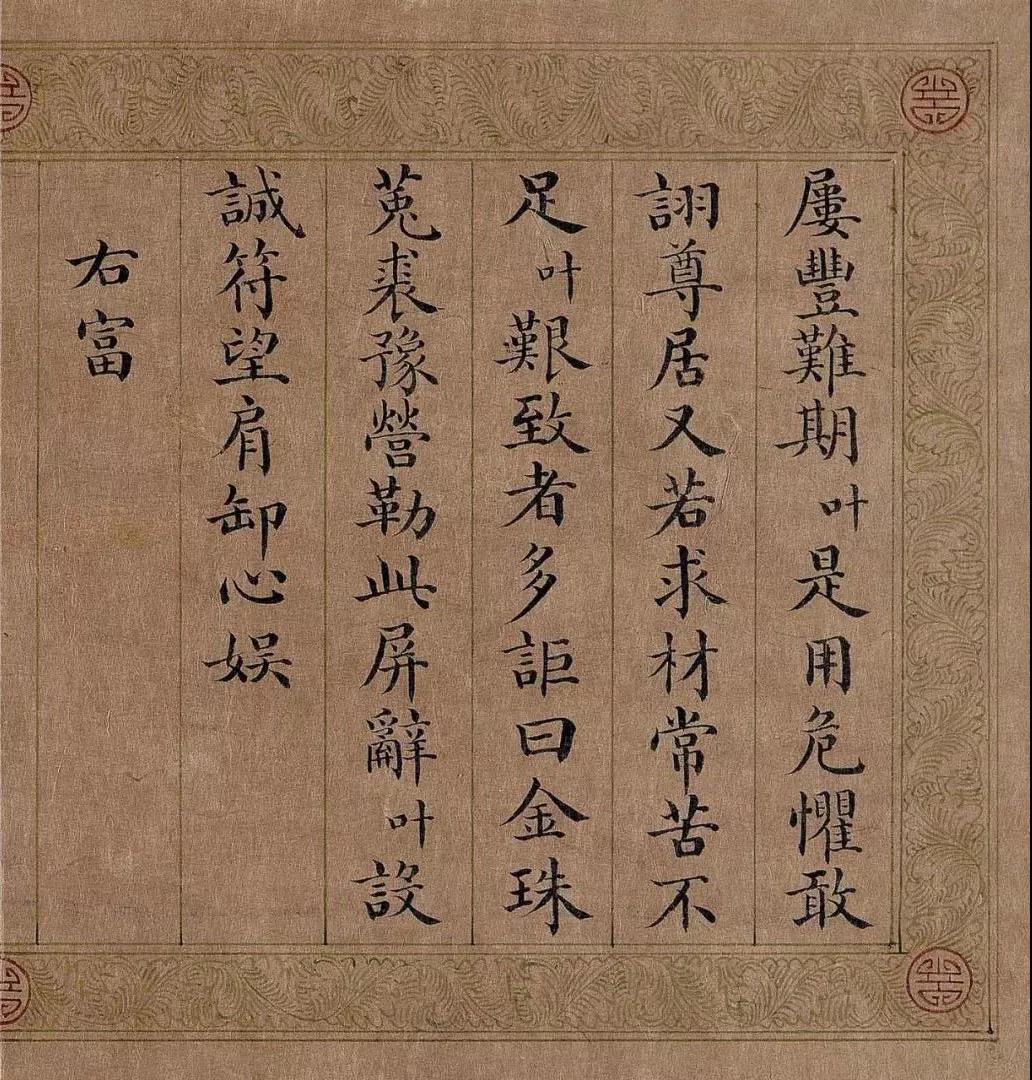 屢豐難期叶是用危懼敢
詡尊居又若求材常苦不
足叶艱致者多詎曰金珠
菟裘豫營勒此屏辭叶設
誠符望肩卸心娛
右富